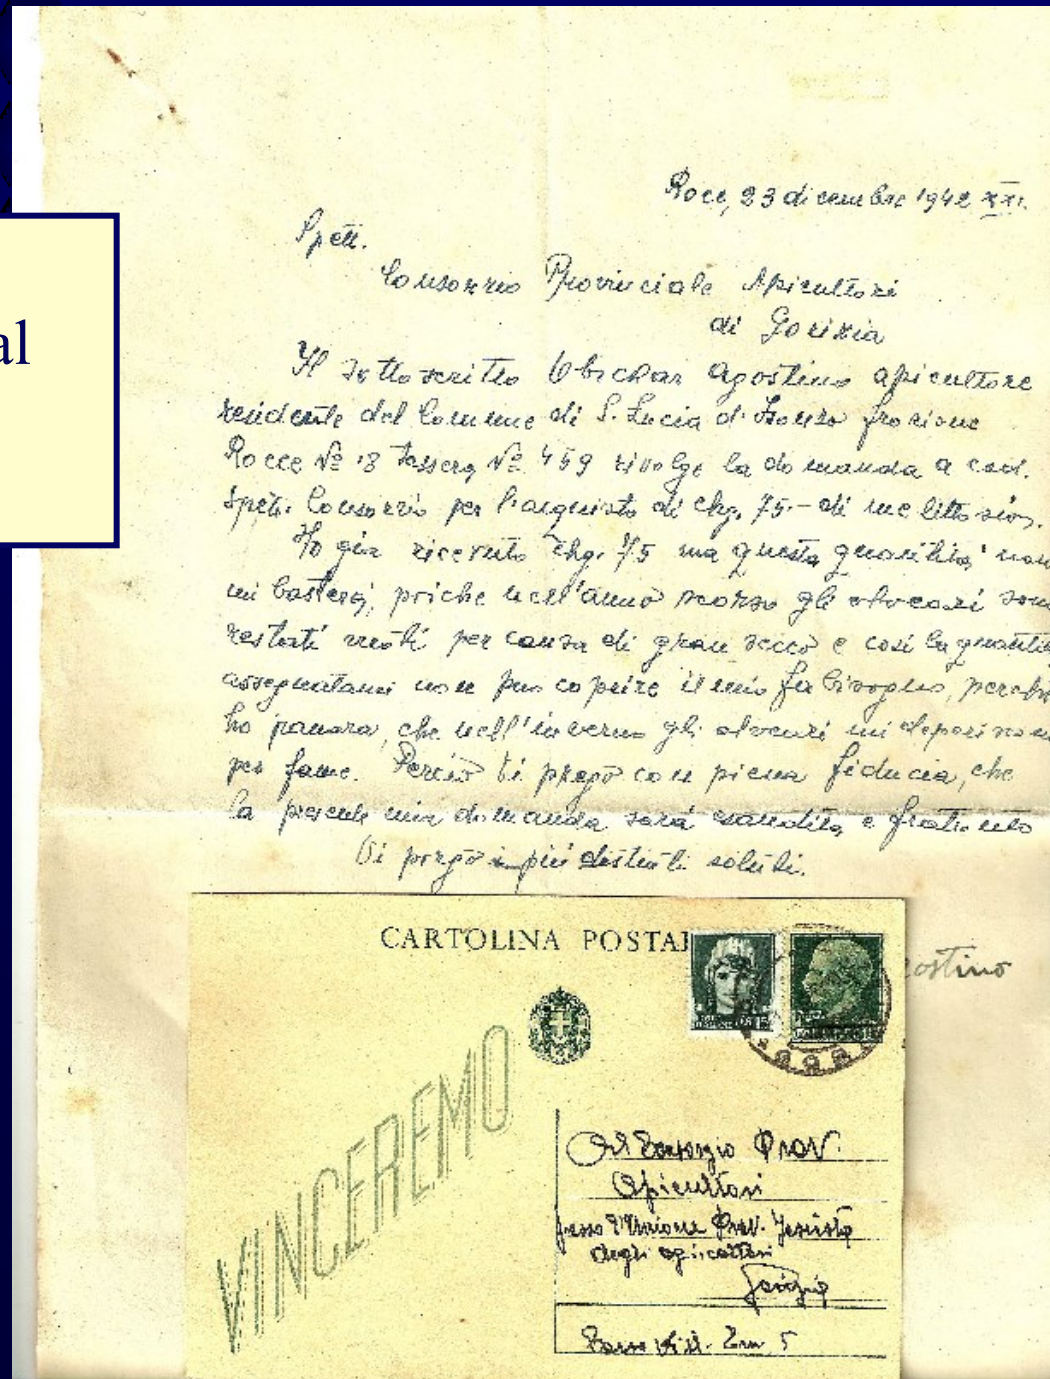 al
Roce, 23 dicembre 1942 XXI.
Spett.
Consorzio Provinciale Apicultori
di Gorizia
Il sottoscritto Agostino apicultore
residente del Comune di S. Lucia d'Isonzo frazione
Rocce Nº 18 Tessera Nº 459 rivolge la domanda a cod.
Spett. Consorzio per l'acquisto di chg. 75.- di melittosio.
Ho gia ricevuto chg. 75 ma questa quantità non
mi basterà, poiche nell'anno scorso gli alveari
restati per causa di gran secco e cosi la
assegnatami non puo coprire il mio fabisogno,
ho paura, che nell'inverno gli alveari mi
per fame. Perciò Vi prego con piena fiducia, che
la presente mia domanda sará esaudita e
Vi porgo i più distinti saluti.
ostino
CARTOLINA POSTA
VINCEREMO
Al Consorzio Prov.
Apicultori
presso l'Unione Prov.
degli agricoltori
Gorizia
Corso Vitt. Em. 5